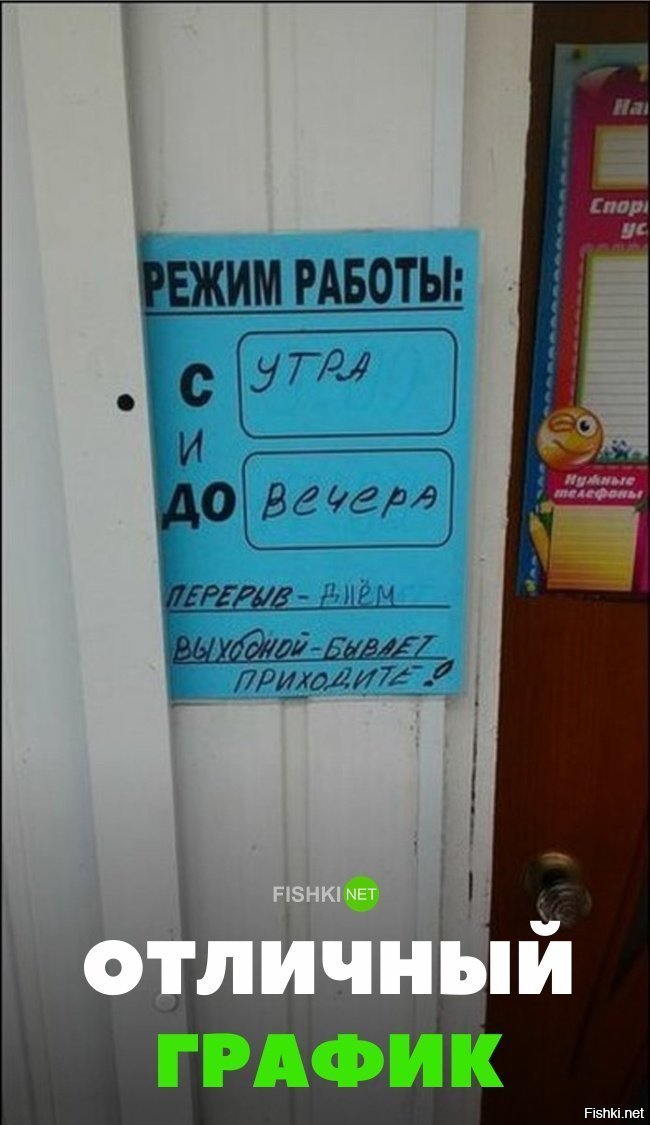 РЕЖИМ РАБОТЫ:
С УТРА
И
ДО ВЕЧЕРА
ПЕРЕРЫВ - ДНЁМ
ВЫХОДНОЙ - БЫВАЕТ
ПРИХОДИТЕ!
Нужные
телефоны
FISHKI NET
ОТЛИЧНЫЙ
ГРАФИК
Fishki.net